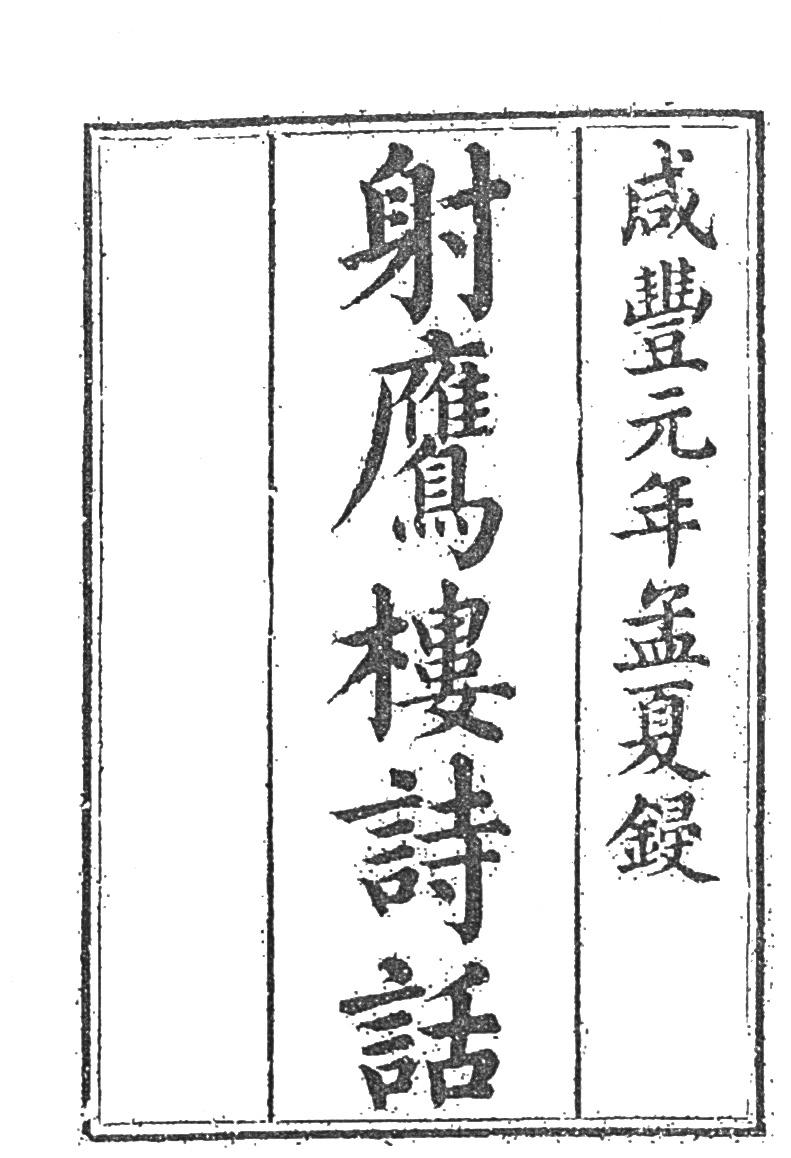 咸豐元年孟夏鋟
射鷹樓詩話